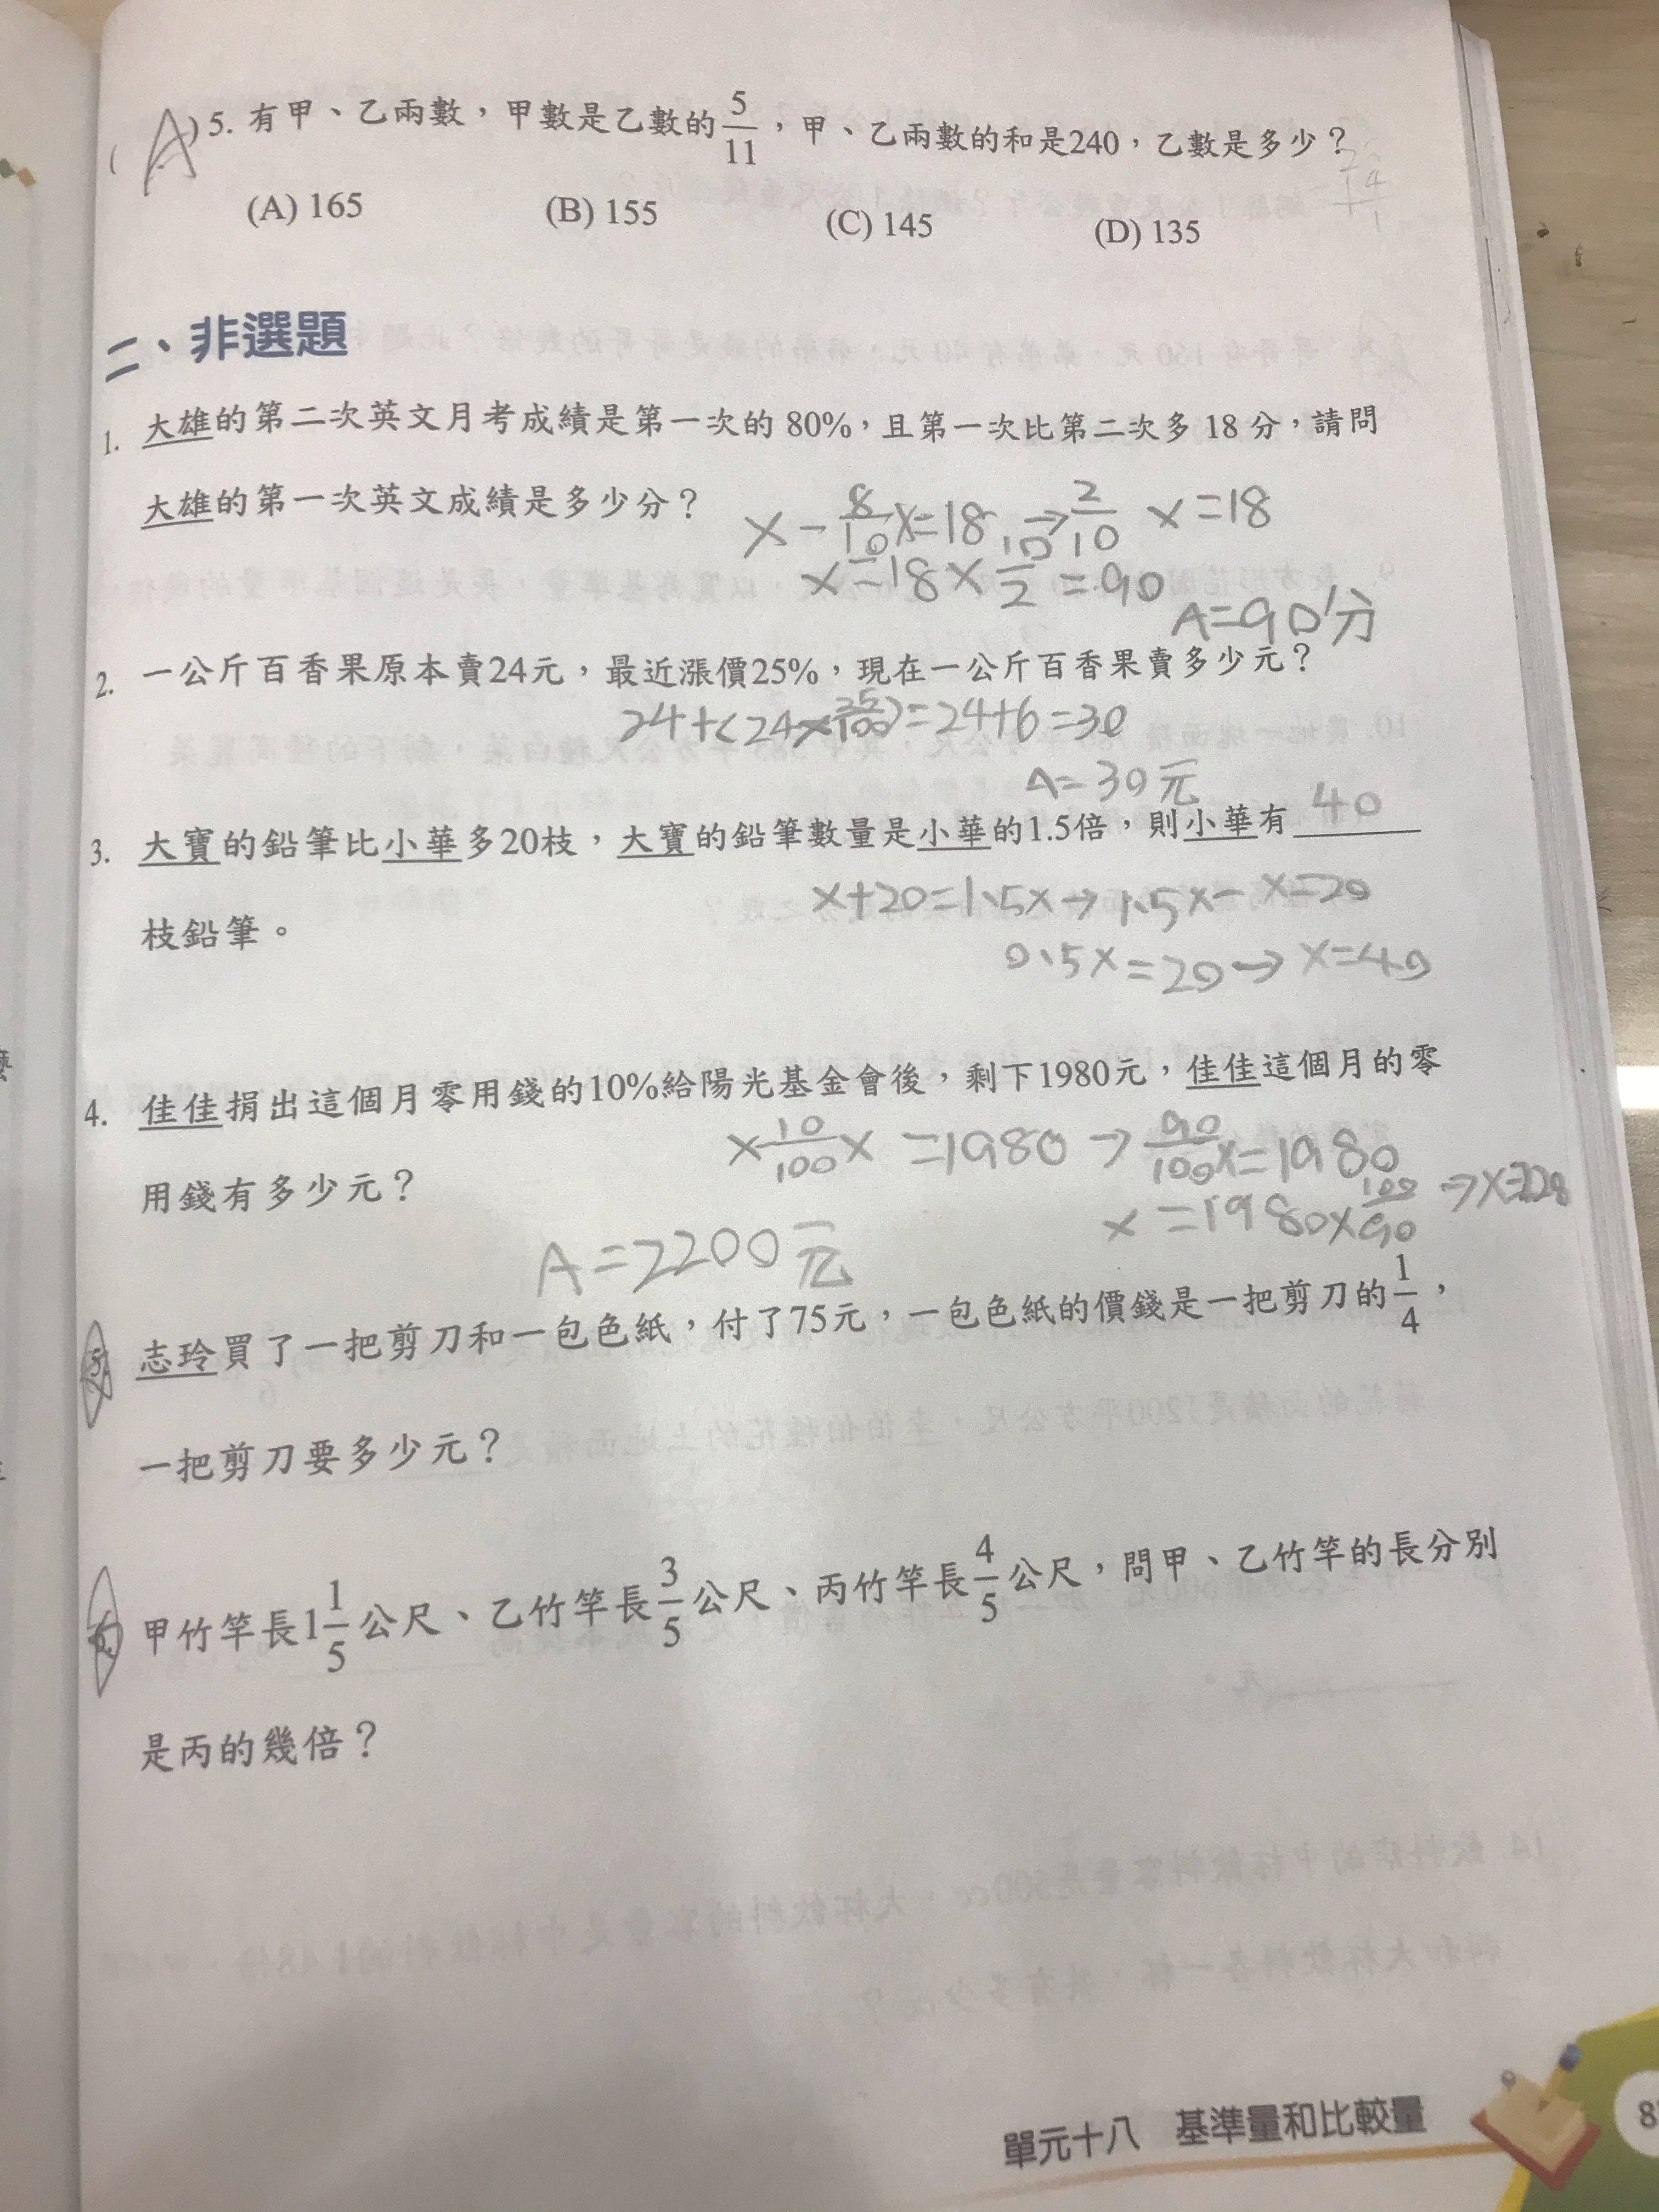 (A)5. 有甲、乙兩數，甲數是乙數的5/11，甲、乙兩數的和是240，乙數是多少？
(A) 165 (B) 155 (C) 145 (D) 135
二、非選題
1. 大雄的第二次英文月考成績是第一次的 80%，且第一次比第二次多 18 分，請問
大雄的第一次英文成績是多少分？
x－8/10x=18 → 2/10 x=18
x=18×10/2=90
A=90分
2. 一公斤百香果原本賣24元，最近漲價25%，現在一公斤百香果賣多少元？
24+(24×25/100)=24+6=30
A=30元
3. 大寶的鉛筆比小華多20枝，大寶的鉛筆數量是小華的1.5倍，則小華有 40
枝鉛筆。
x+20=1.5x→1.5x－x=20
0.5x=20→x=40
4. 佳佳捐出這個月零用錢的10%給陽光基金會後，剩下1980元，佳佳這個月的零
用錢有多少元？
x－10/100x=1980→90/100x=1980
x=1980×100/90
A=2200元
5. 志玲買了一把剪刀和一包色紙，付了75元，一包色紙的價錢是一把剪刀的1/4，
一把剪刀要多少元？
6. 甲竹竿長1 1/5公尺、乙竹竿長3/5公尺、丙竹竿長4/5公尺，問甲、乙竹竿的長分別
是丙的幾倍？
單元十八 基準量和比較量